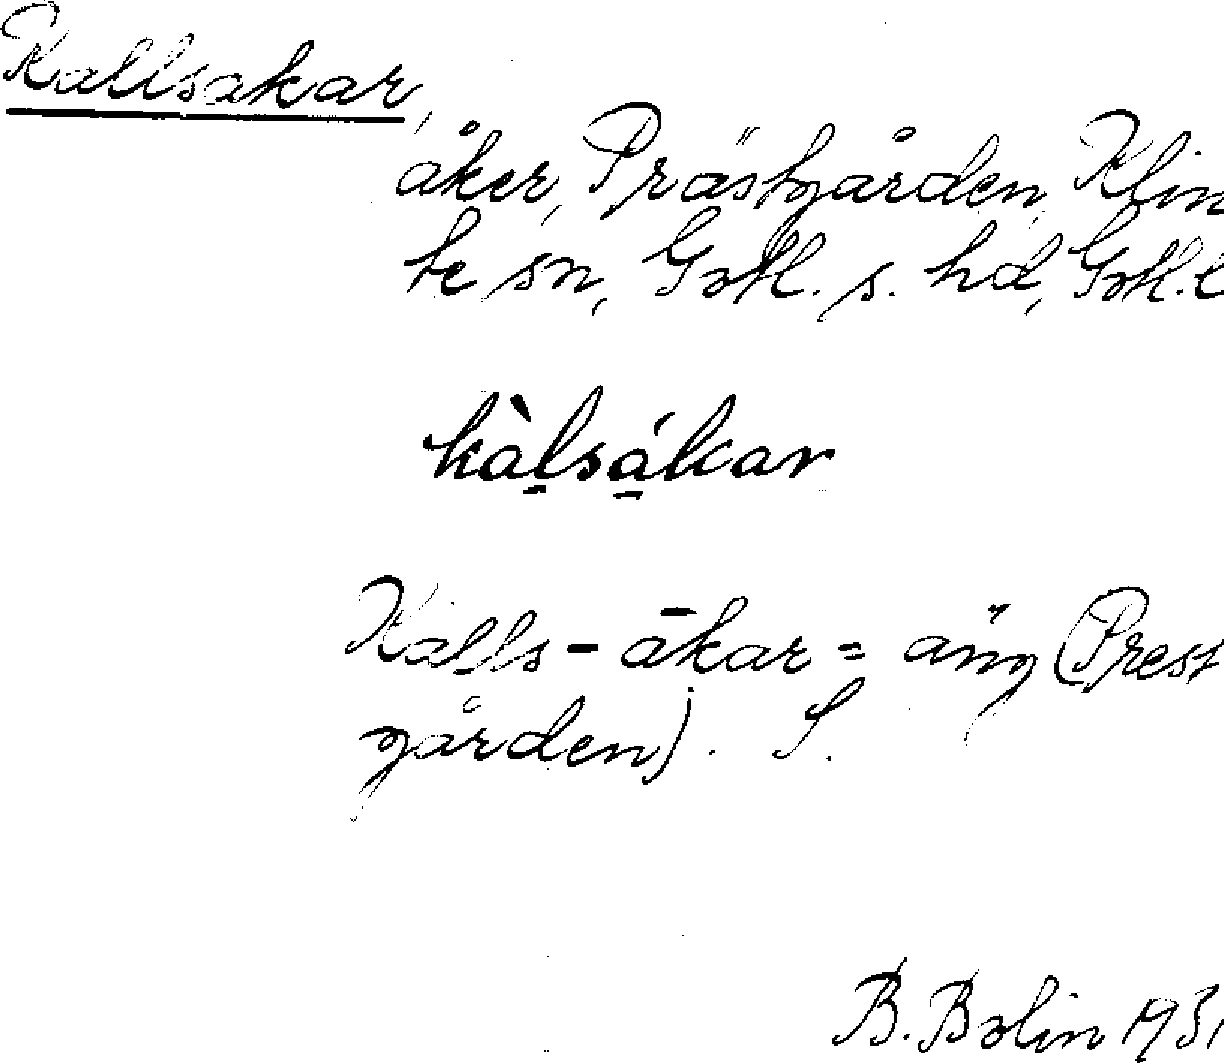 Kallsakar,
åker, Prästgården, Klin
te sn, Gotl. s. hd, Gotl. l
kàlsákar
Kalls - ākar = äng (Prest
gården). S.
B. Bolin 1931